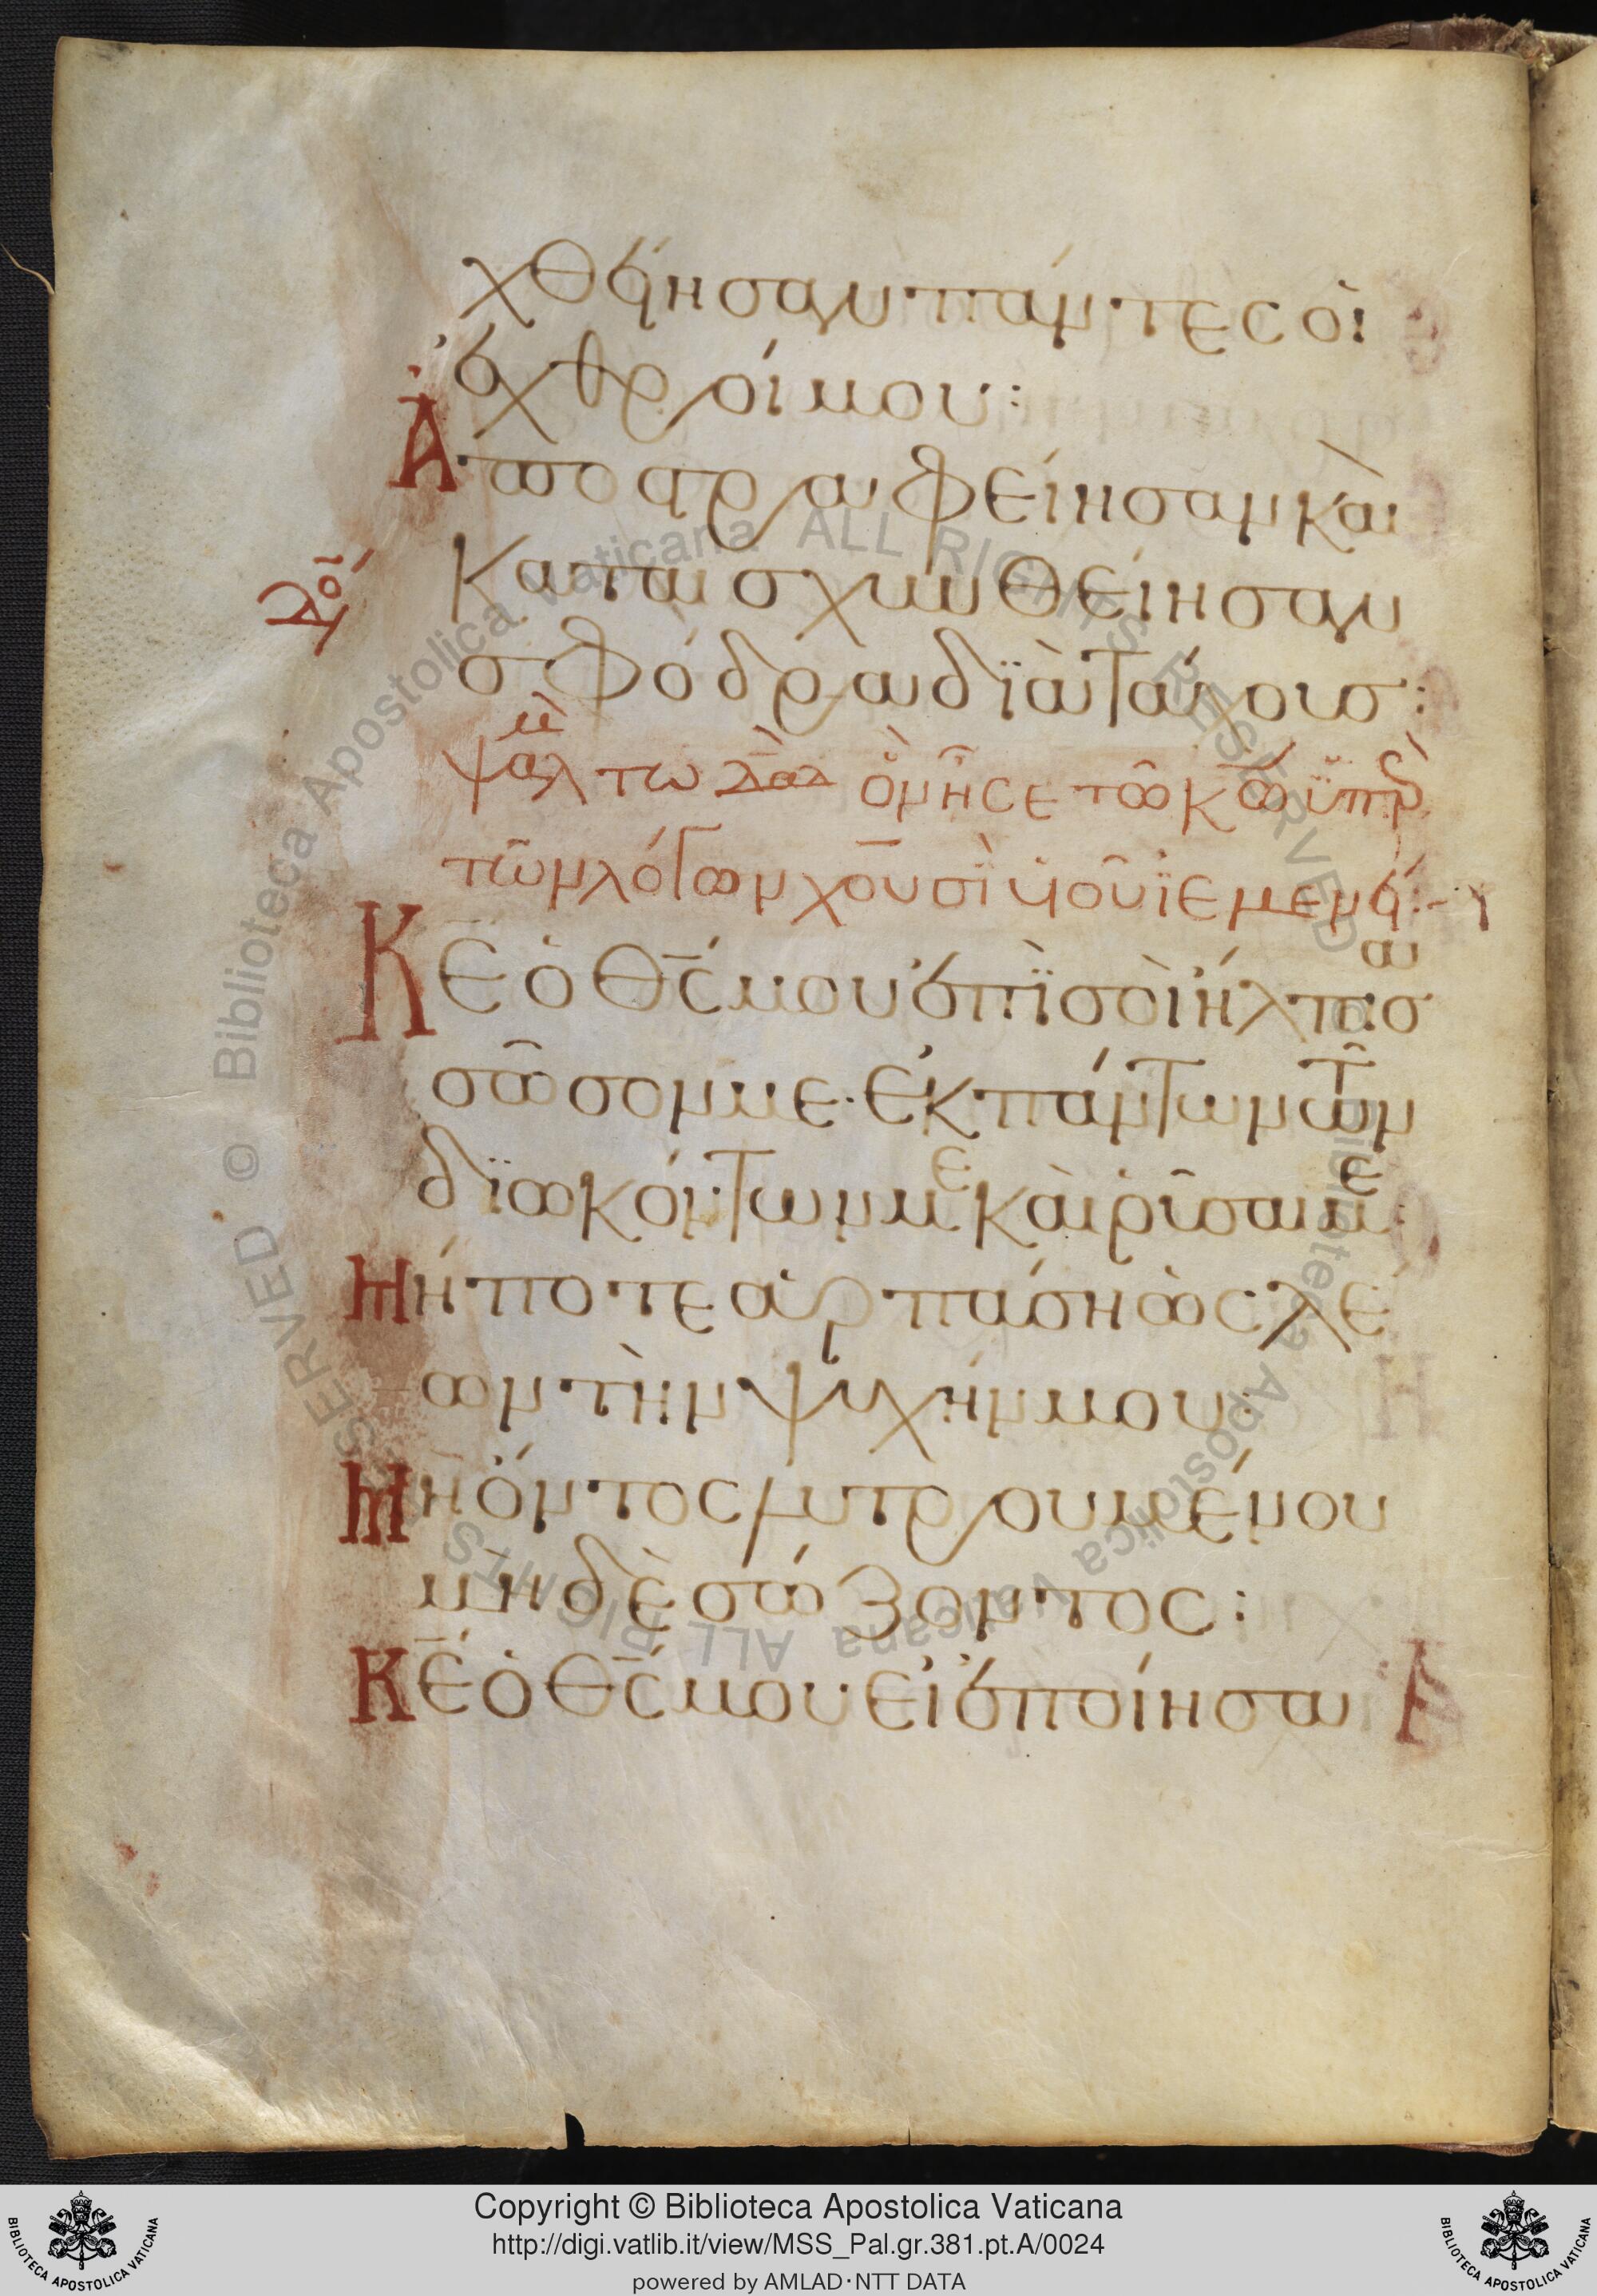 χθείησαν πάντες οἱ
ἐχθροί μου:
Ἀποστραφείησαν καὶ
καταισχυνθείησαν
σφόδρα διὰ τάχους:
ψαλμ τω δαδ ὃν ἦσε τῶ κῶ ὑπὲρ
τῶν λόγων χουσὶ υἱοῦ ϊεμενεί:
Κε ὁ θς μου ἐπὶ σοὶ ἤλπισα
σῶσον με· ἐκ πάντων τῶν
διωκόντων με καὶ ρῦσαι με:
Μήποτε ἁρπάση ὡς λέ
ων τὴν ψυχήν μου:
Μὴ ὄντος λυτρουμένου
μηδὲ σώζοντος:
Κε ὁ θς μου εἰ ἐποίησα
Copyright © Biblioteca Apostolica Vaticana
http://digi.vatlib.it/view/MSS_Pal.gr.381.pt.A/0024
powered by AMLAD·NTT DATA
BIBLIOTECA APOSTOLICA VATICANA
BIBLIOTECA APOSTOLICA VATICANA